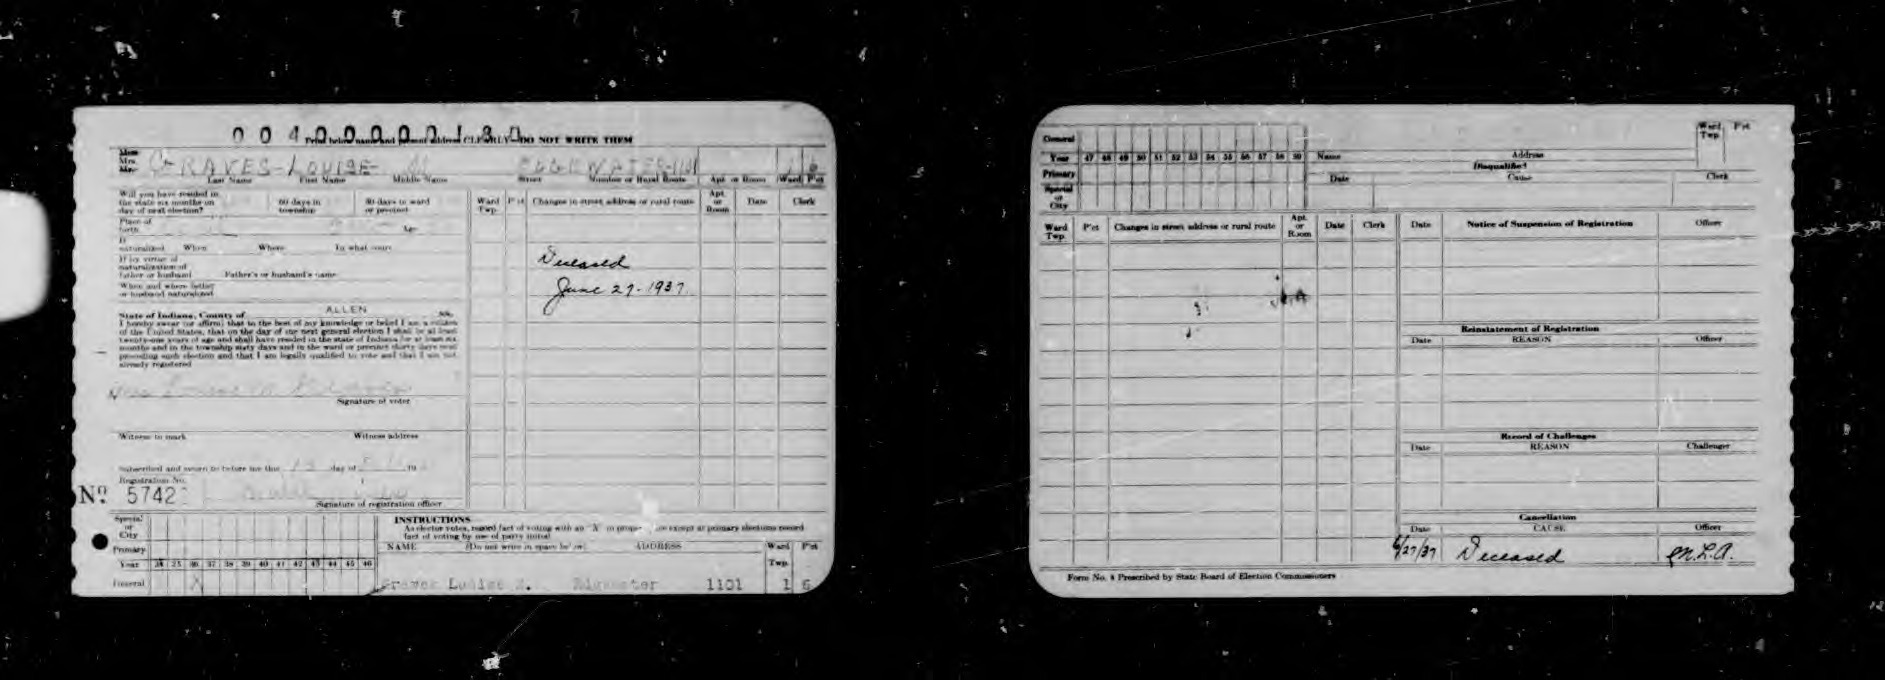 Print below name and present address CLEARLY. DO NOT WRITE THEM
Miss
Mrs.
Mr.
GRAVES-LOUISE M EDGEWATER-1101 1 6
Last Name First Name Middle Name Street Number or Rural Route Apt. or Room Ward P'ct
Will you have resided in
the state six months on
day of next election?
60 days in
township
30 days in ward
or precinct
Place of
birth
Age
If
naturalized When Where In what court
If by virtue of
naturalization of
father or husband Father's or husband's name
When and where father
or husband naturalized
State of Indiana, County of ALLEN ss.
I hereby swear (or affirm) that to the best of my knowledge or belief I am a citizen
of the United States, that on the day of our next general election I shall be at least
twenty-one years of age and shall have resided in the state of Indiana for at least six
months and in the township sixty days and in the ward or precinct thirty days next
preceding such election and that I am legally qualified to vote and that I am not
already registered
Mrs Louise M Graves
Signature of voter
Witness to mark Witness address
Subscribed and sworn to before me this 13 day of
Registration No.
No. 5742
Signature of registration officer
Ward
Twp.
P'ct
Changes in street address or rural route
Apt.
or
Room
Date
Clerk
Deceased
June 27-1937
Special
or
City
Primary
Year 34 35 36 37 38 39 40 41 42 43 44 45 46
General X
INSTRUCTIONS
As elector votes, record fact of voting with an "X" in proper except at primary elections record
fact of voting by use of party initial
NAME (Do not write in space below) ADDRESS Ward Twp. P'ct
Graves Louise M. Edgewater 1101 1 6
General
Year 47 48 49 50 51 52 53 54 55 56 57 58 59
Primary
Special
or
City
Name Address
Ward
Twp.
P'ct
Disqualified
Date Cause Clerk
Ward
Twp.
P'ct
Changes in street address or rural route
Apt.
or
Room
Date
Clerk
Date Notice of Suspension of Registration Officer
Reinstatement of Registration
Date REASON Officer
Record of Challenges
Date REASON Challenger
Cancellation
Date CAUSE Officer
6/27/37 Deceased M.L.A.
Form No. 4 Prescribed by State Board of Election Commissioners